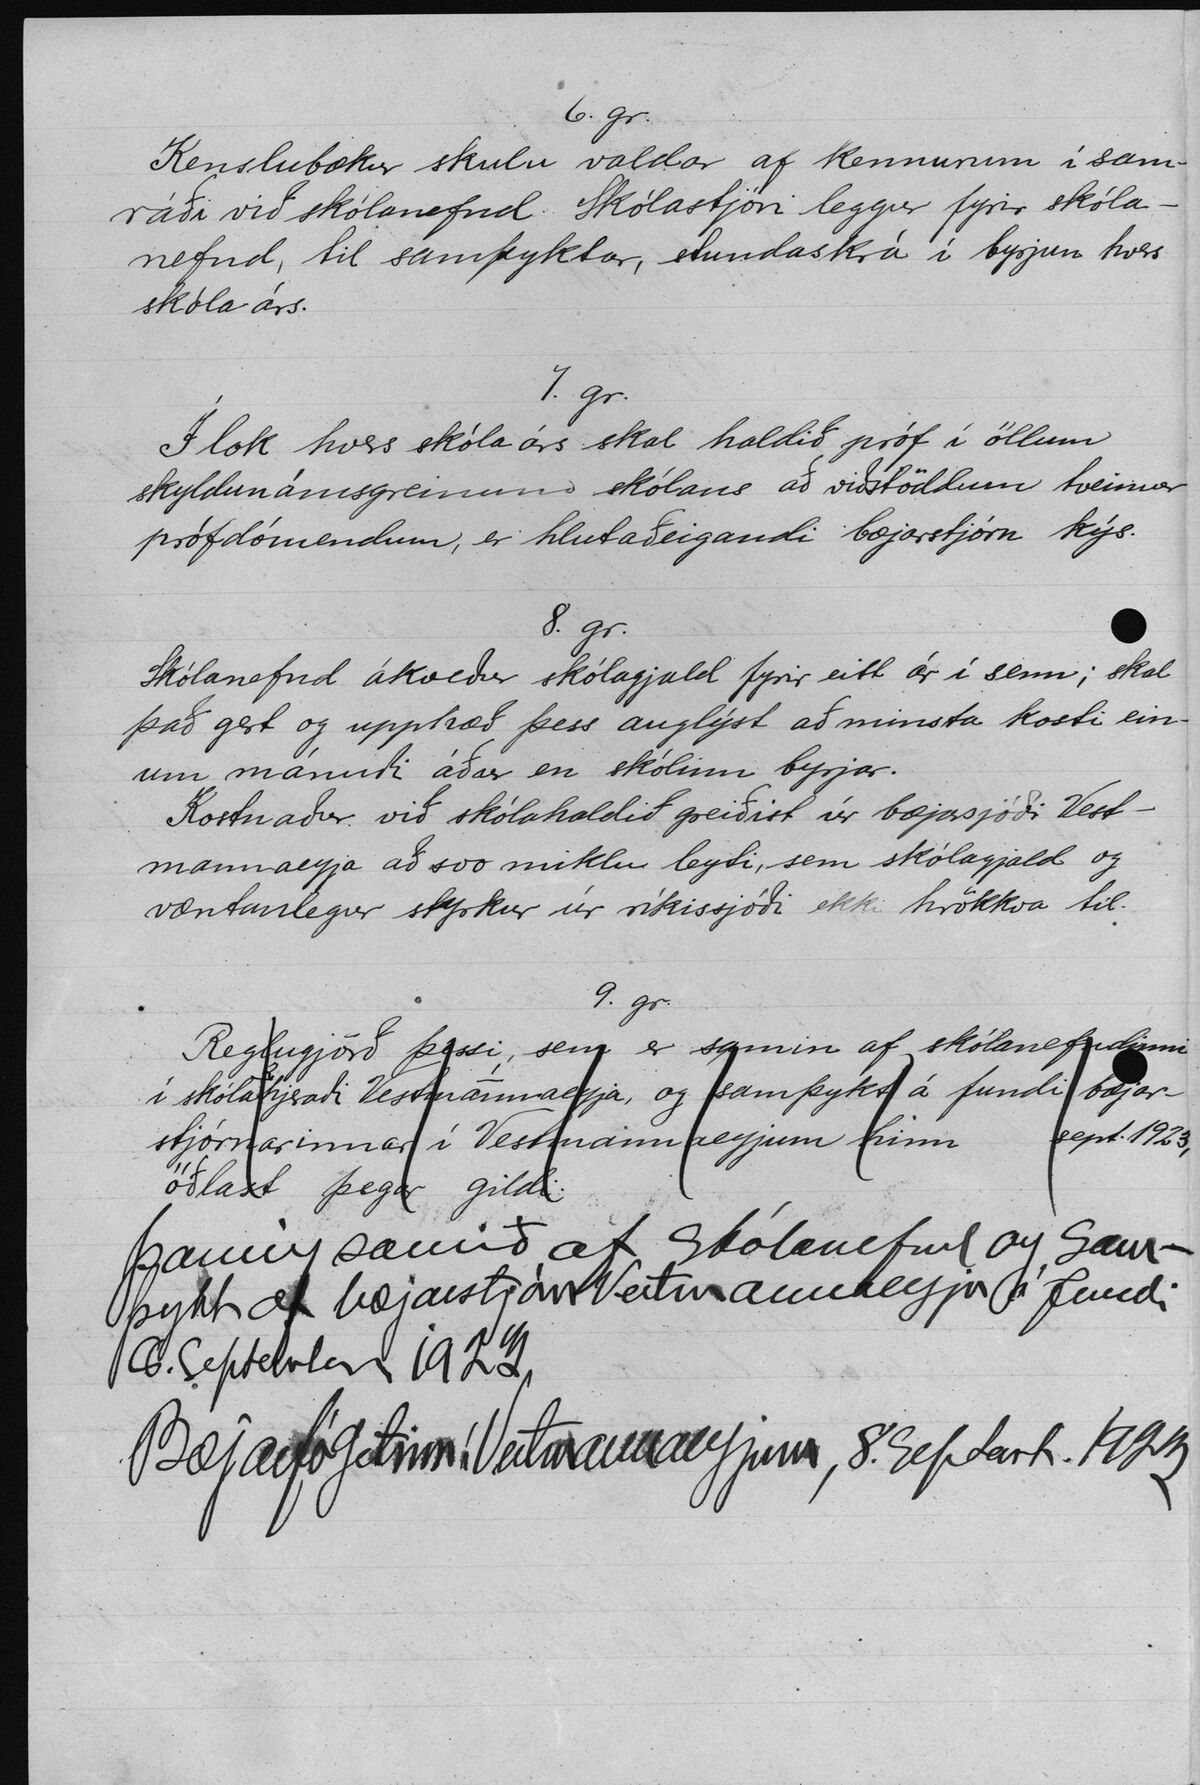 6. gr.
Kenslubækur skulu valdar af kennurum í sam-
ráði við skólanefnd. Skólastjóri leggur fyrir skóla-
nefnd, til samþyktar, stundaskrá í byrjun hvers
skóla árs.
7. gr.
Í lok hvers skóla árs skal haldið próf í öllum
skyldunámsgreinum skólans að viðstöddum tveimur
prófdómendum, er hlutaðeigandi bæjarstjórn kýs.
8. gr.
Skólanefnd ákveður skólagjald fyrir eitt ár í senn; skal
það gert og upphæð þess auglýst að minsta kosti ein-
um mánuði áður en skólinn byrjar.
Kostnaður við skólahaldið greiðist úr bæjarsjóði Vest-
mannaeyja að svo miklu leyti, sem skólagjald og
væntanlegur styrkur úr ríkissjóði ekki hrökkva til.
9. gr.
Reglugjörð þessi, sem er samin af skólanefndinni
í skólahjeraði Vestmannaeyja, og samþykt á fundi bæjar-
stjórnarinnar í Vestmannaeyjum hinn sept. 1923,
öðlast þegar gildi.
Þannig samið af Skólanefnd og Sam-
þykt af bæjarstjórn Vestmannaeyja á fundi
6. September 1923.
Bæjarfógetinn í Vestmannaeyjum, 8. Septbr. 1923